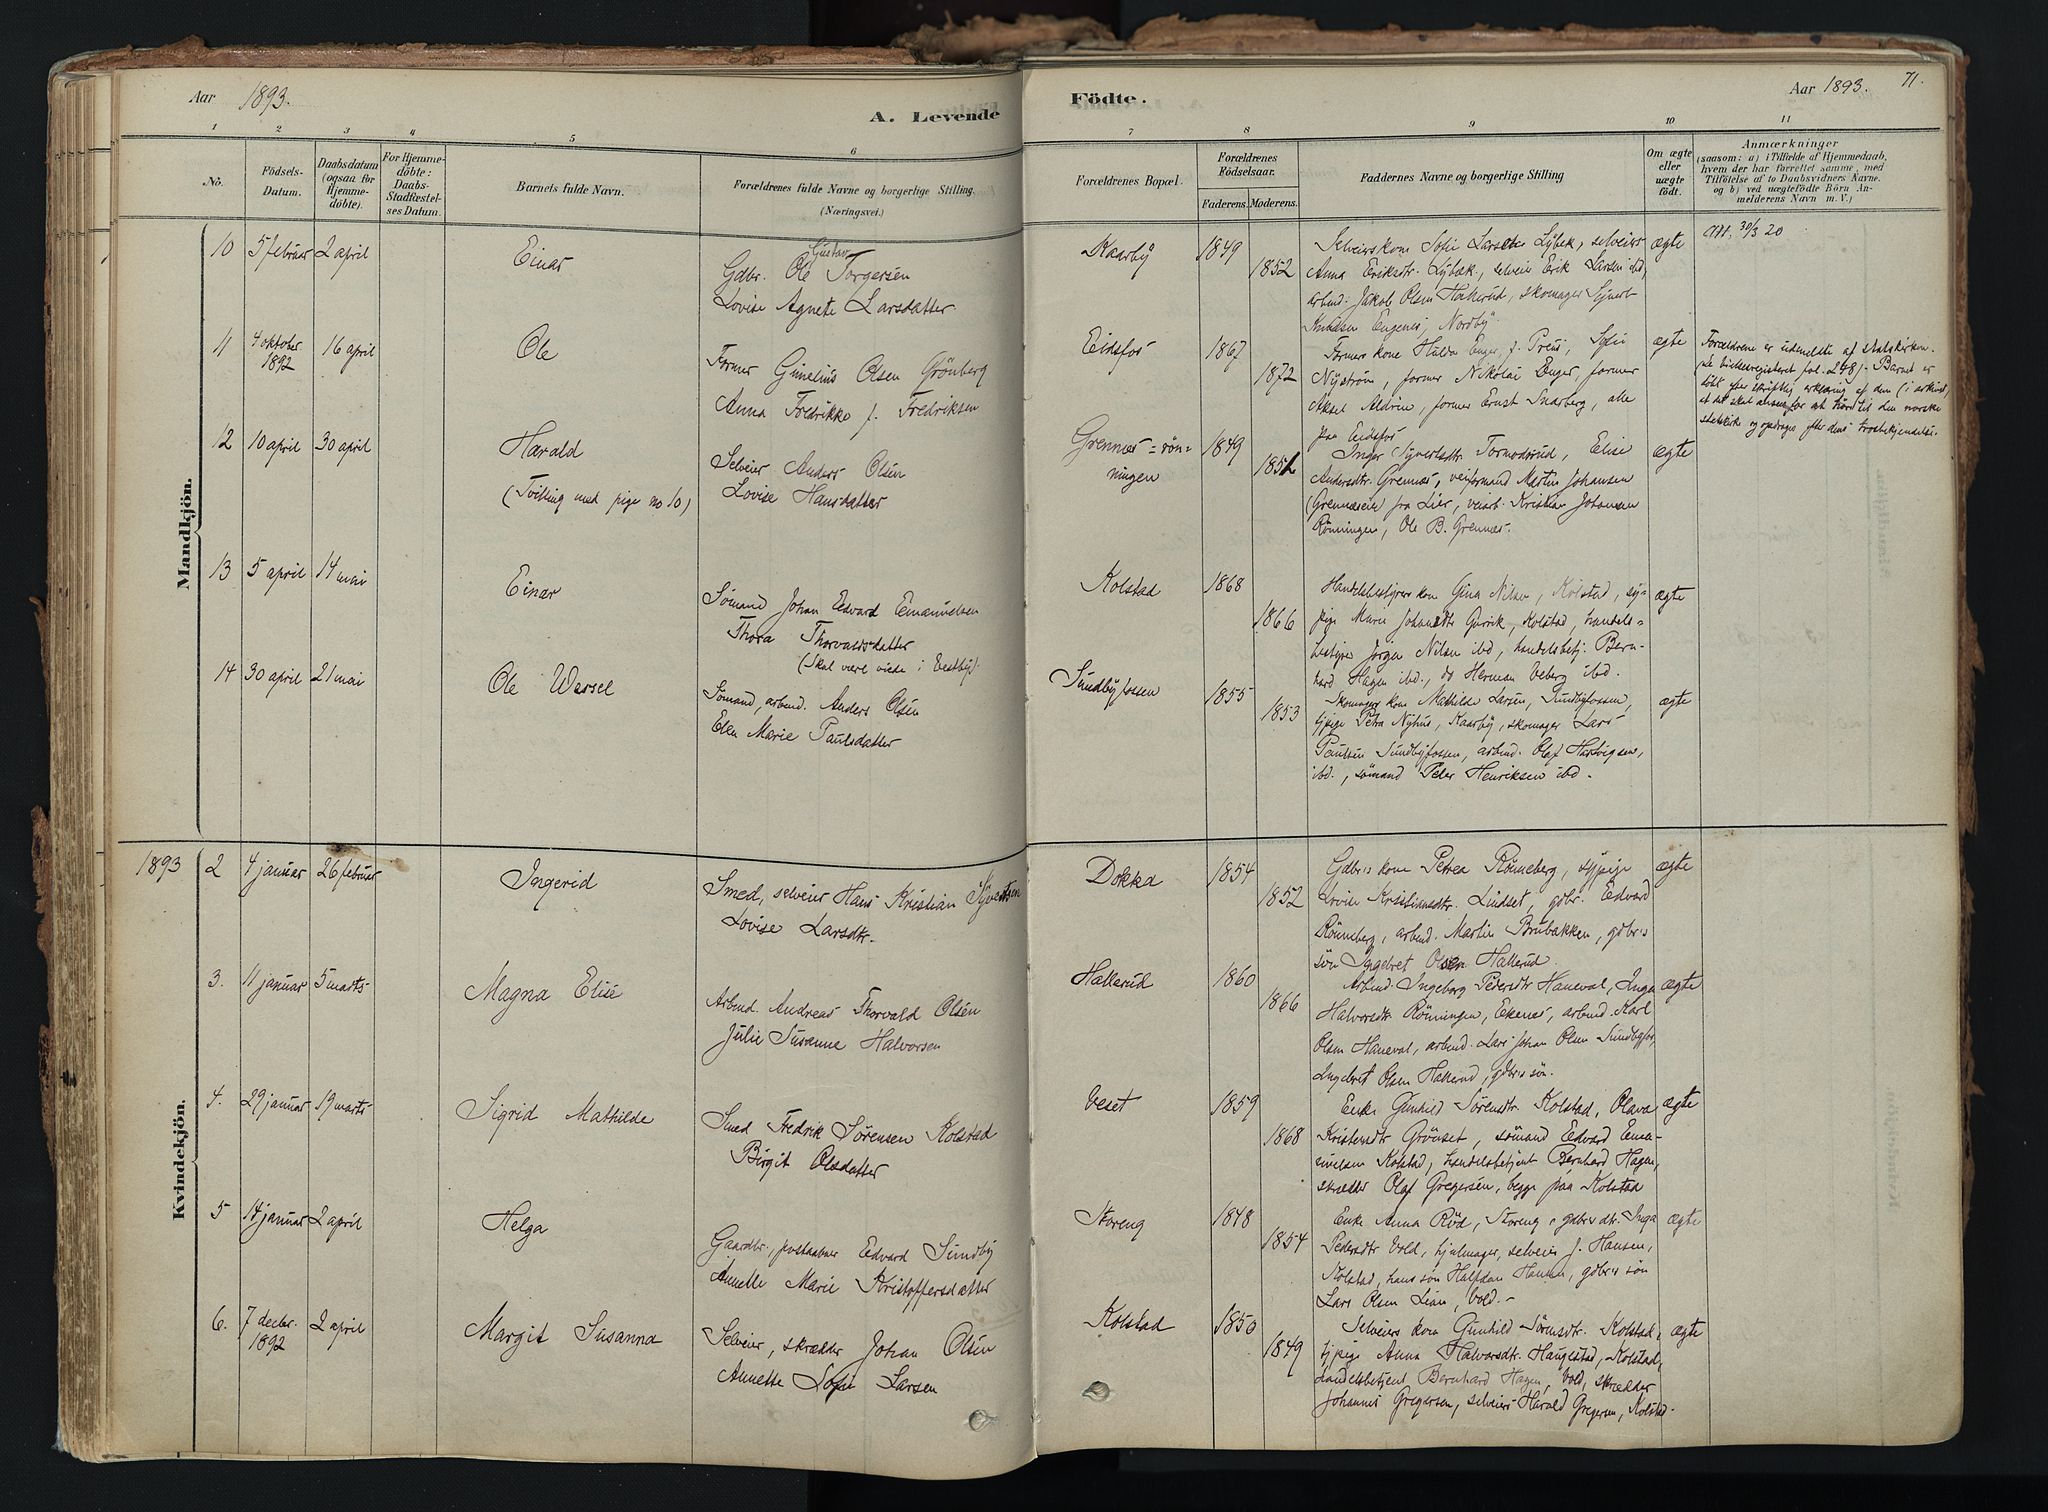 Aar 1893.
A. Levende
Födte.
Aar 1893. 71.
1 2 3 4 5 6 7 8 9 10 11
No.
Födsels-
Datum.
Daabsdatum
(ogsaa for
Hjemme-
döbte).
For Hjemme-
döbte:
Daabs-
Stadfæstel-
ses Datum.
Barnets fulde Navn.
Forældrenes fulde Navne og borgerlige Stilling.
(Næringsvei.)
Forældrenes Bopæl.
Forældrenes
Födselsaar.
Faderens. Moderens.
Faddernes Navne og borgerlige Stilling
Om ægte
eller
uægte
födt.
Anmærkninger
(saasom: a) i Tilfælde af Hjemmedaab,
hvem der har forrettet samme, med
Tilföielse af to Daabsvidners Navne.
og b) ved uægtefödte Börn An-
melderens Navn m. V.)
Mandkjön.
10 5 februar 2 april Einar
Gustav
Gdbr. Ole Torgersen
Lovise Agnete Larsdatter
Kaarby 1849 1852
Selveiers kone Sofie Larsdtr Lybek, selveiers
Anna Eriksdtr. Lybæk, selveier Erik Larsen ibd,
Arbeid: Jakob Olsen Hallerud, skomager Syvert
Knudsen Engenes, Nordby
ægte
Att. 30/3 20
11 4 oktober 1892 16 april Ole
Former Gunelius Olsen Grönberg
Anna Fredrikke f. Fredriksen
Eidsfos 1867 1872
Formers kone Hulda Enger, f. Preus, Sofie
Nyström, former Nikolai Enger, former
Aksel Aldrin, former Ernst Snarberg, alle
paa Eidsfos
ægte
Forældrene er udmeldte af statskirken.
Barnet er
döbt efter skriftlig erklæring af dem (i arkivet)
at det skal ansees for at höre til den norske
statskirke og opdrages efter dens trosbekjendelse.
12 10 april 30 april Harald
(Tvilling med pige no 10)
Selveier Anders Olsen
Lovise Hansdatter
Grennes=rön=
ningen
1849 1851
Inger Syvertsdtr. Tormodsrud, Elise
Andersdtr. Grennes, veiformand Martin Johansen
(Grenneseie) fra Lier, veiarb. Kristian Johansen
Rönningen, Ole B. Grennes.
ægte
13 5 april 14 mai Einar
Sömand Johan Edvard Emanuelsen
Thora Thorvaldsdatter
(Skal være viede i Vestby).
Kolstad 1868 1866
Handelsbestyrer kone Gina Nilsen, Kolstad, sy-
pige Marie Johansdtr Gurik, Kolstad, handels=
bestyrer Jörgen Nilsen ibd, handelsbetj. Bern-
hard Hagen ibd., do Herman Veberg ibd.
ægte
14 30 april 21 mai Ole Wessel
Sömand, arbeid. Anders Olsen
Elen Marie Paulsdatter
Sundbyfossen 1855 1853
Skomagers kone Mathilde Larsen, Sundbyfossen,
tjpige Petra Nyhus, Kaarby, skomager Lars
Paulsen Sundbyfossen, arbeid. Olaf Hartvigsen,
ibd., sömand Peter Henriksen ibd.
ægte
1893
Kvindekjön.
2 4 januar 26 februar Ingerid
Smed, selveier Hans Kristian Syvertsen
Lovise Larsdtr.
Dokka 1854 1852
Gdbr.s kone Petrea Rönneberg, sypige
Lovise Kristiansdtr. Lindset, gdbr. Edvard
Rönneberg, arbeid. Martin Brubakken, gdbr.s
sön Ingebret Olsen Hallerud.
ægte
3. 11 januar 5 marts Magna Elise
Arbeid. Andreas Thorvald Olsen
Julie Susanne Halvorsen
Hallerud 1860 1866
Arbeid. Ingeborg Pedersdtr Haneval, Inga
Halvorsdtr. Rönningen, Ekenes, arbeid. Karl
Olsen Haneval, arbeid. Lars Johan Olsen Sundbyfos,
Ingebret Olsen Hallerud, gdbr.s sön.
ægte
4. 29 januar 19 marts Sigrid Mathilde
Smed Fredrik Sörensen Kolstad
Birgit Olsdatter
Veset 1859 1868
Enke Gunhild Sörensdtr. Kolstad, Olava
Kristensdtr Grönset, sömand Edvard Ema-
nuelsen Kolstad, handelsbetjent Bernhard Hagen,
skrædder Olaf Gregersen, begge paa Kolstad
ægte
5 14 januar 2 april Helga
Gaardbr., postaabner Edvard Sundby
Annette Marie Kristoffersdatter
Storeng 1848 1854
Enke Anna Röd, Storeng, gdbr.s dtr. Inga
Pedersdtr Vold, hjulmager, selveier J. Hansen,
Kolstad, hans sön Halfdan Hansen, gdbr.s sön
Lars Olsen Lian, Vold.
ægte
6. 7 decbr. 1892 2 april Margit Susanna
Selveier, skrædder Johan Olsen
Annette Sofie Larsen
Kolstad 1850 1849
Selveiers kone Gunhild Sörensdtr. Kolstad,
tjpige Anna Halvorsdtr. Haugestad, Kolstad,
handelsbetjent Bernhard Hagen, Vold, skrædder
Johannes Gregersen, selveier Harald Gregersen, Kolstad.
ægte